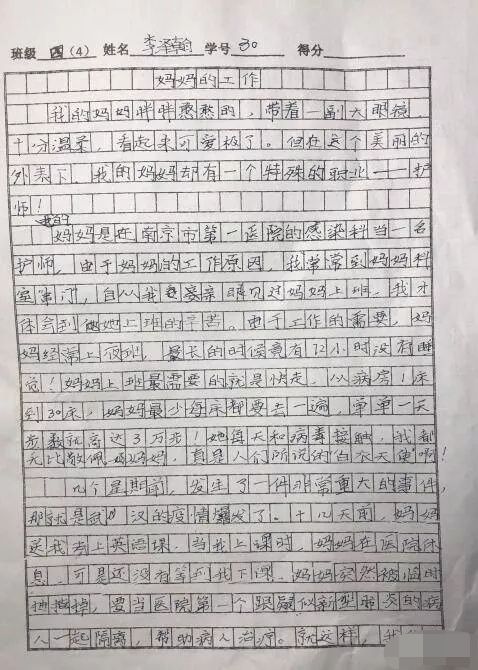 班级 四(4) 姓名 李泽翰 学号 30 得分
妈妈的工作
我的妈妈胖胖憨憨的，带着一副大眼镜，
十分温柔，看起来可爱极了。但在这个美丽的
外表下，我的妈妈却有一个特殊的职业——护
师！
我的妈妈是在南京市第一医院的感染科当一名
护师，由于妈妈的工作原因，我常常到妈妈科
室串门，自从我亲眼见过妈妈上班，我才
体会到她上班的辛苦。由于工作的需要，妈
妈经常上夜班，最长的时候竟有12小时没有睡
觉！妈妈上班最需要的就是快走，从病房1床
到30床，妈妈最少每床都要去一遍，单单一天
步数就高达3万步！她每天和病毒接触，我都
无比敬佩妈妈，真是人们所说的"白衣天使"啊！
几个星期前，发生了一件非常重大的事件，
那就是武汉的疫情爆发了。十几天前，妈妈
送我去上英语课，当我上课时，妈妈在医院休
息，可是还没有等到我下课，妈妈突然被临时
掉，要当医院第一个跟疑似新型肺炎的病
人一起隔离，帮助病人治疗。就这样，我